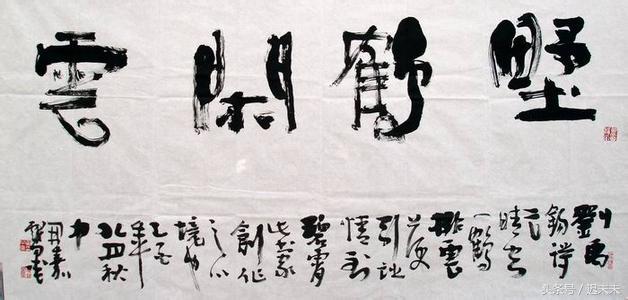 墅鶴閑雲
劉禹
錫詩
云
晴空
一鶴
排雲
上便
引詩
情到
碧霄
創作
之心
境也
乙酉
年
中
头条号 / 迟未未